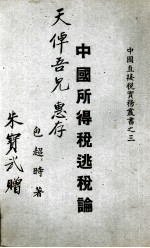 中國直接稅實務叢書之三
中國所得稅逃稅論
包超時著
天俾吾兄惠存
朱寶弍贈